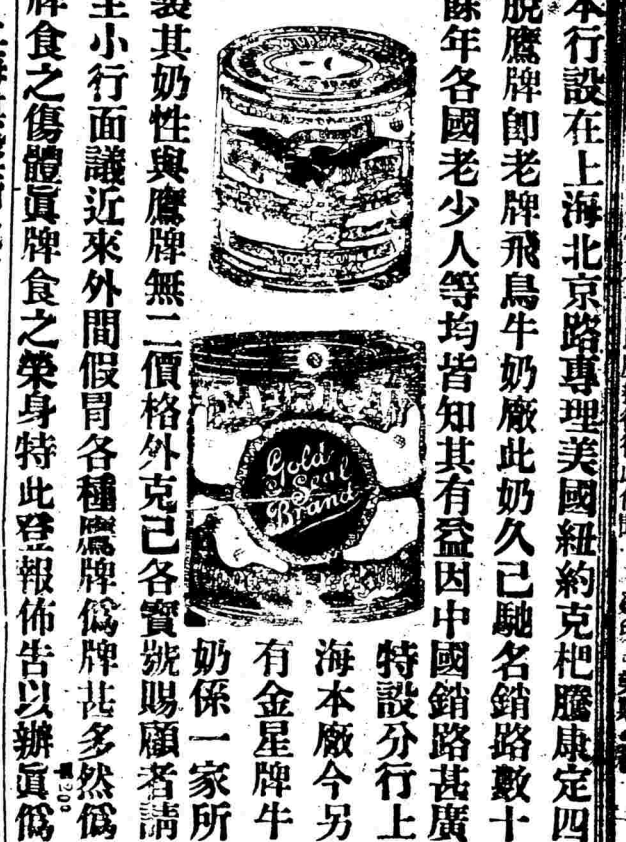 本行設在上海北京路專理美國紐約克杷騰康定四
脫鷹牌卽老牌飛鳥牛奶廠此奶久已馳名銷路數十
餘年各國老少人等均皆知其有益因中國銷路甚廣
特設分行上
海本廠今另
有金星牌牛
奶係一家所
製其奶性與鷹牌無二價格外克己各寶號賜顧者請
至小行面議近來外間假冒各種鷹牌僞牌甚多然僞
牌食之傷體眞牌食之榮身特此登報佈告以辦眞僞
Gold
Seal
Brand